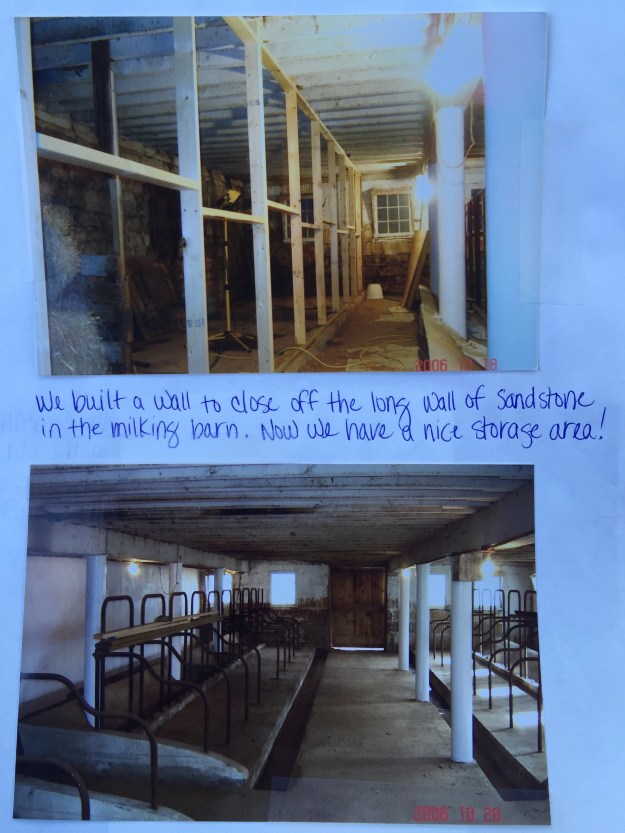 2006 10 18
We built a wall to close off the long wall of sandstone
in the milking barn. Now we have a nice storage area!
2006 10 28